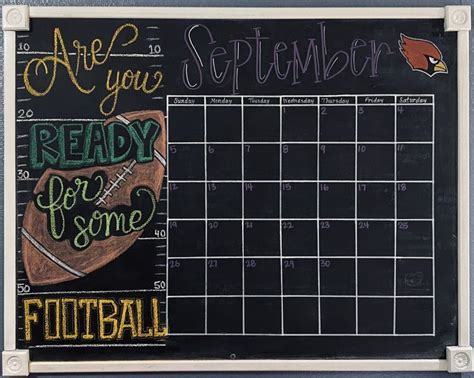 Are
you
READY
for
some
FOOTBALL
10 10
20 20
30 30
40 40
50 50
September
Sunday Monday Tuesday Wednesday Thursday Friday Saturday
1 2 3 4
5 6 7 8 9 10 11
12 13 14 15 16 17 18
19 20 21 22 23 24 25
26 27 28 29 30